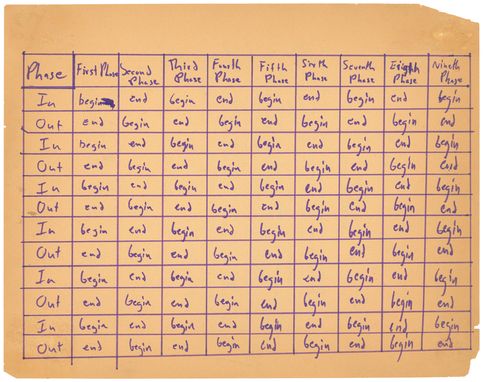 Phase First Phase Second Phase Third Phase Fourth Phase Fifth Phase Sixth Phase Seventh Phase Eighth Phase Nineth Phase
In begin end begin end begin end begin end begin
Out end begin end begin end begin end begin end
In begin end begin end begin end begin end begin
Out end begin end begin end begin end begin end
In begin end begin end begin end begin end begin
Out end begin end begin end begin end begin end
In begin end begin end begin end begin end begin
Out end begin end begin end begin end begin end
In begin end begin end begin end begin end begin
Out end begin end begin end begin end begin end
In begin end begin end begin end begin end begin
Out end begin end begin end begin end begin end